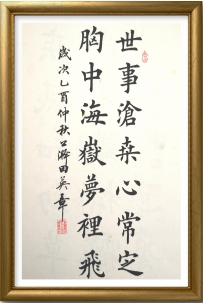 世事滄桑心常定
胸中海嶽夢裡飛
歲次乙酉仲秋上澣田英章